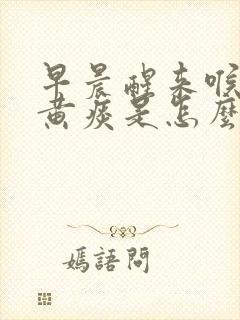 早晨醒来喉
黄痰是怎麼
媽語問